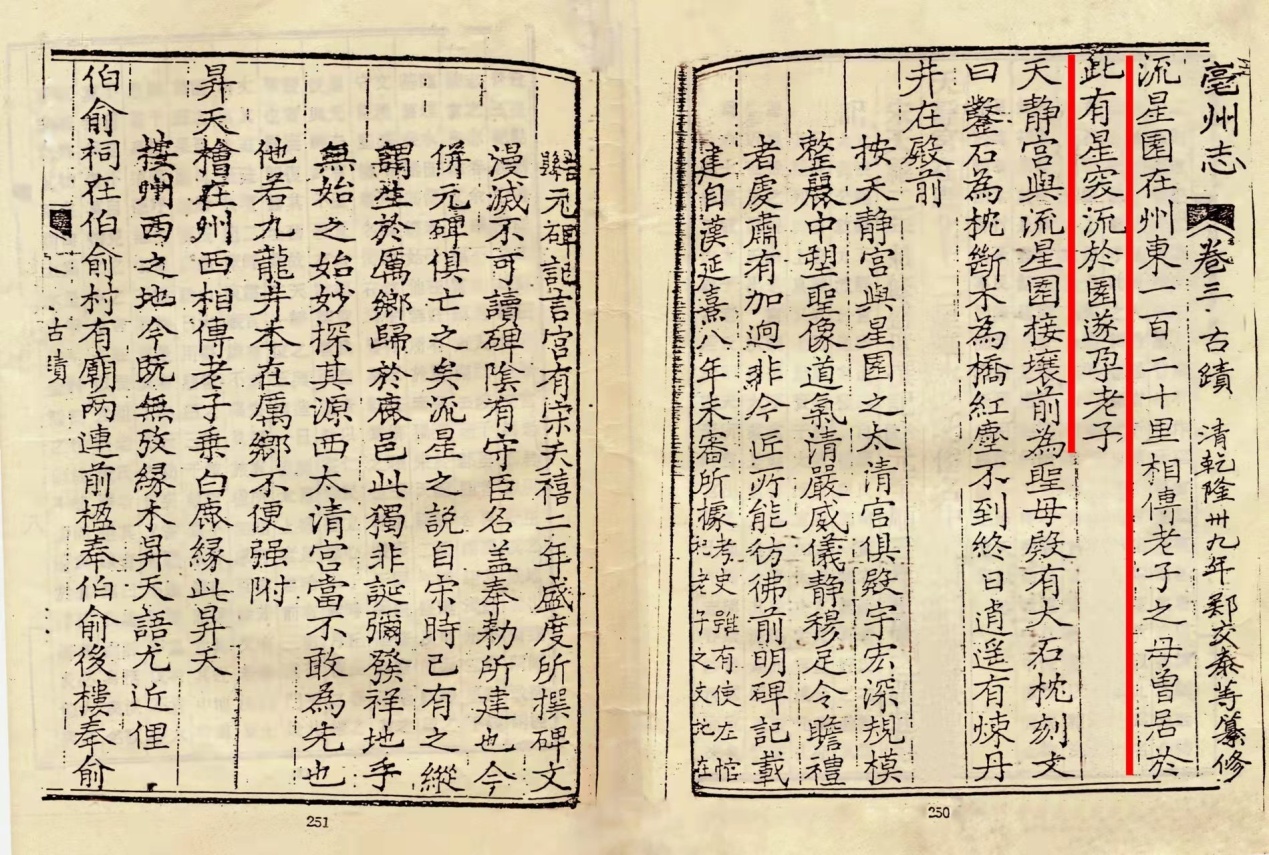 亳州志 卷三 古蹟 清乾隆卅九年 鄭交泰等纂修
流星園在州東一百二十里相傳老子之母曾居於
此有星突流於園遂孕老子
天静宮與流星園接壤前為聖母殿有大石枕刻文
曰鑿石為枕斷木為橋紅塵不到終日逍遥有煉丹
井在殿前
按天静宮與星園之太清宮俱殿宇宏深規模
整嚴中塑聖像道氣清嚴威儀静穆足令瞻禮
者虔肅有加迥非今匠所能彷彿前明碑記載
建自漢延熹八年未審所據考史雖有使左悺
祀老子之文此在
250
元碑記言宮有宋天禧二年盛度所撰碑文
漫滅不可讀碑陰有守臣名盖奉勅所建也今
併元碑俱亡之矣流星之說自宋時已有之縱
謂生於厲鄉歸於鹿邑此獨非誕彌發祥地乎
無始之始妙探其源西太清宮當不敢為先也
他若九龍井本在厲鄉不便强附
昇天檜在州西相傳老子乗白鹿緣此昇天
按州西之地今既無攷緣木昇天語尤近俚
伯俞祠在伯俞村有廟两連前楹奉伯俞後樓奉俞
古蹟
251